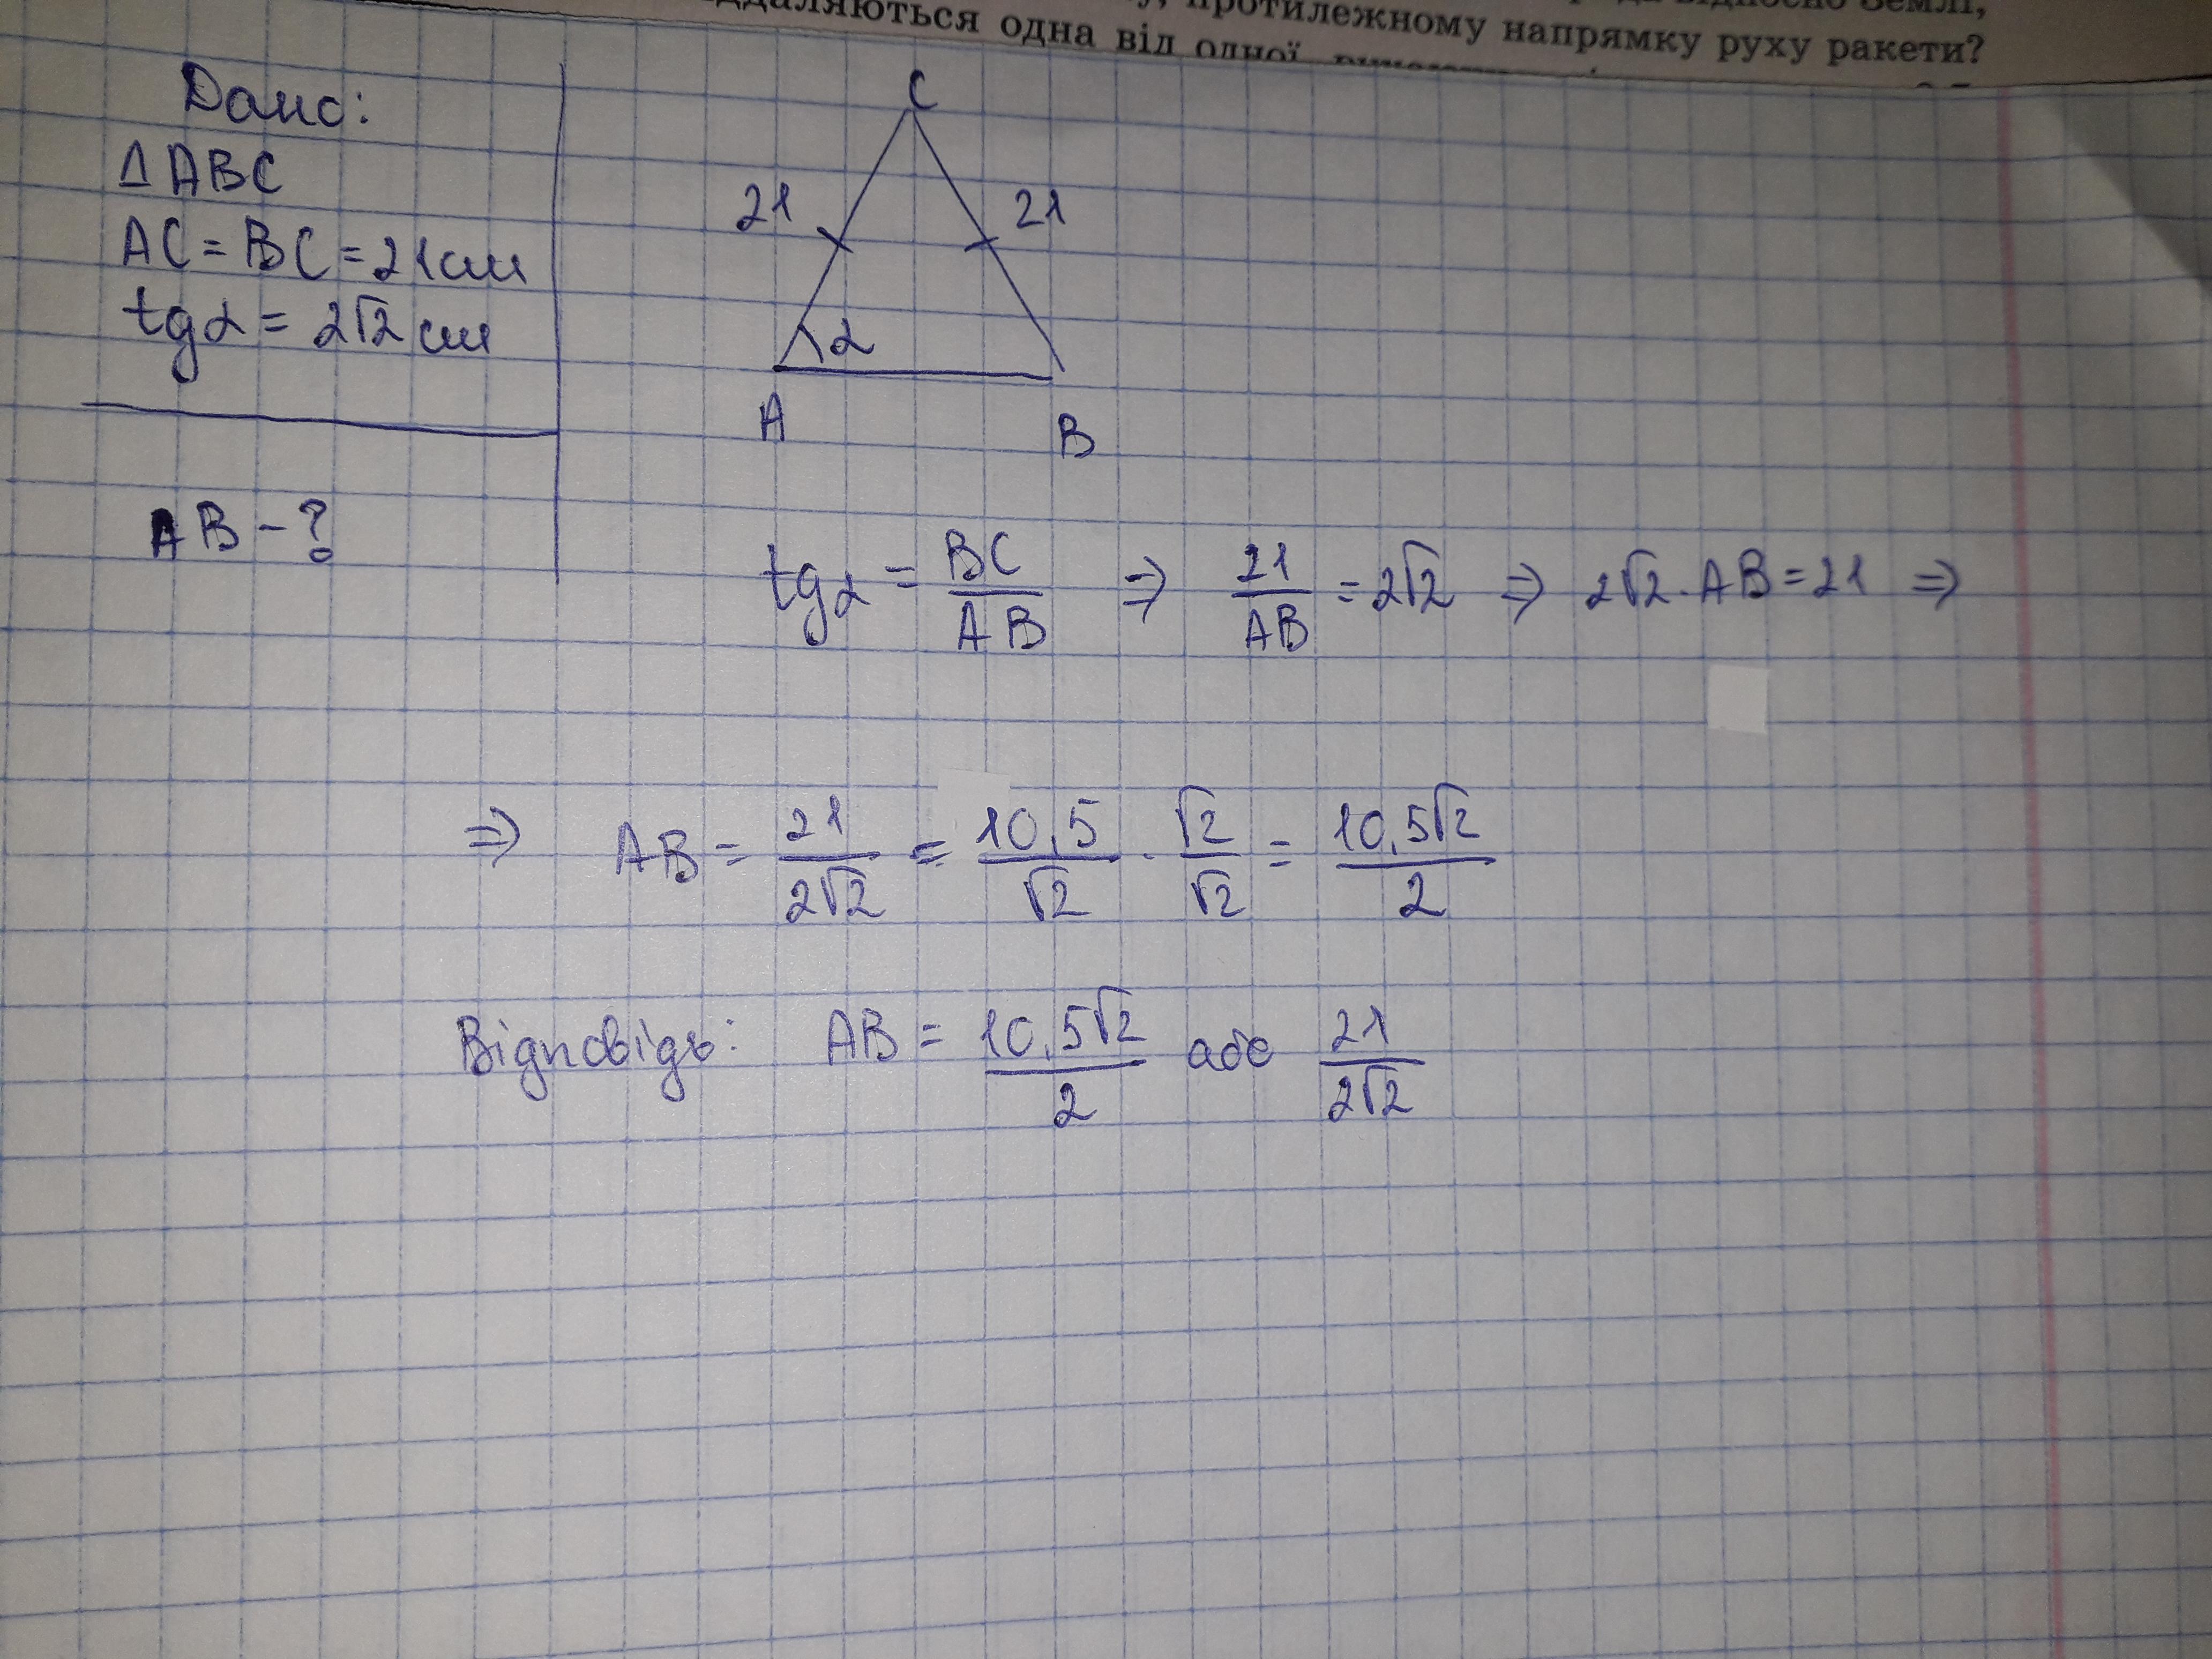 протилежному напрямку руху ракети?
одна від одної
Дано:
△ABC
AC = BC = 21см
tgα = 2√2 см
AB - ?
C
21 21
α
A B
tgα = BC/AB ⇒ 21/AB = 2√2 ⇒ 2√2 · AB = 21 ⇒
⇒ AB = 21/2√2 = 10,5/√2 · √2/√2 = 10,5√2/2
Відповідь: AB = 10,5√2/2 або 21/2√2